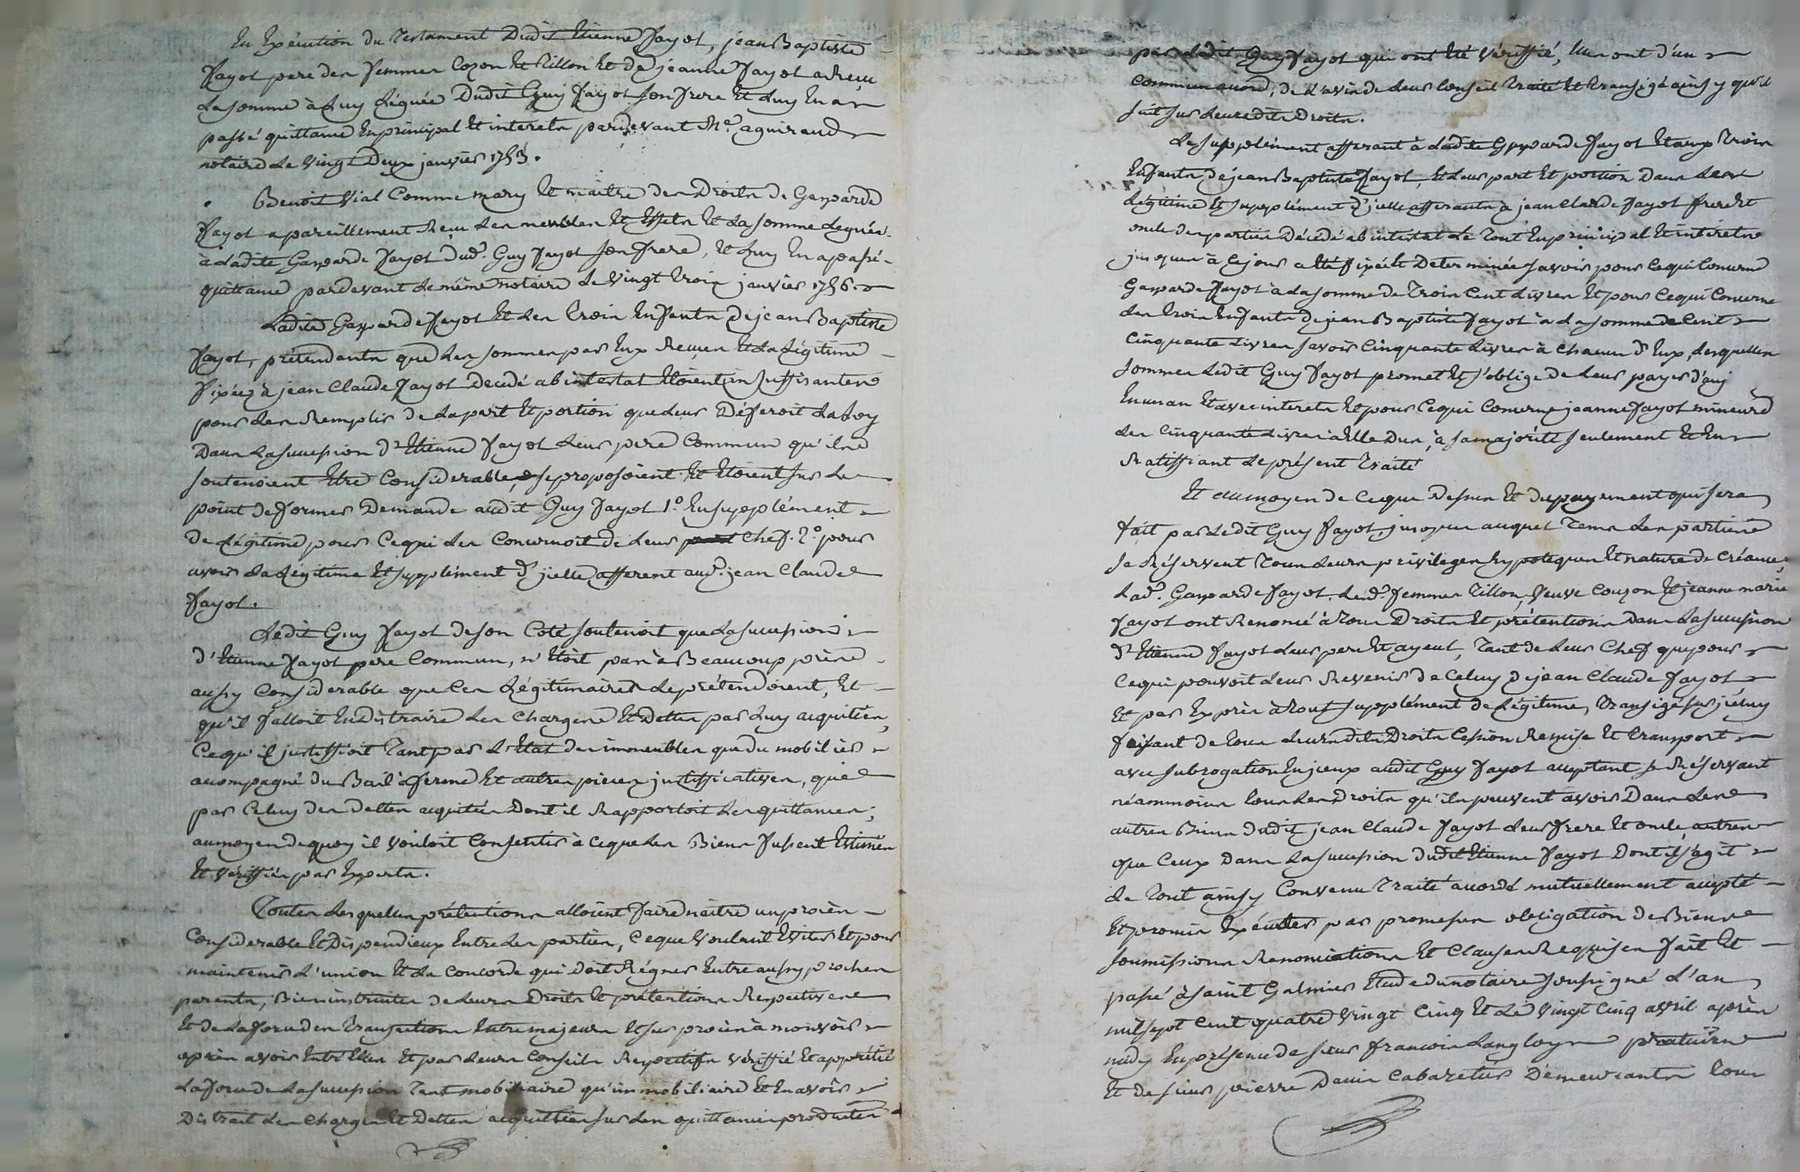 En Exécution du Testament Dudit Etienne fayot, jean Baptiste
fayot pere des femmes Cozon Et Tillon Et de jeanne fayot a Reçu
La somme à Luy Léguée Dudit Guy fayot son frere Et Luy En a
passé quittance En principal Et interets pardevant Me. aguiraud
notaire Le vingt Deux janvier 1753.
Benoit Vial Comme mary Et maitre des Droits de Gasparde
fayot a pareillement Reçu Les meubles Et Effets Et La somme Leguée
à Ladite Gasparde fayot dud. Guy fayot son frere, Et Luy En a passé
quittance pardevant Le même notaire Le vingt Trois janvier 1756.
Ladite Gasparde fayot Et Les Trois Enfants de jean Baptiste
fayot, prétendants que Les sommes par Eux Reçues Et La Légitime
fixée à jean Claude fayot Decedé ab intestat Etoient insuffisantes
pour Les Remplir de La part Et portion que Leur Déferoit La Loy
Dans La succession d'Etienne fayot Leur pere Commun qu'ils
soutenoient Etre Considerable, se proposoient Et Etoient sur Le
point de former Demande audit Guy fayot 1o. En supplément
De Légitime pour Ce qui Les Concernoit de Leur Chef. 2o. pour
avoir La Légitime Et supplément d'jcelle afferent aud. jean Claude
fayot.
Ledit Guy fayot de son Coté soutenoit que La succession
d'Etienne fayot pere Commun, n'Etoit pas à Beaucoup près
aussy Considerable que Ces Légitimaires Le prétendoient, Et
qu'il falloit En distraire Les charges Et Dettes par Luy acquitées,
Ce qu'il justiffioit Tant par L'Etat des immeubles que du mobilier
accompagné du Bail à ferme Et autres pieces justifficatives, que
par Celuy des dettes acquitées Dont il Rapportoit Les quittances;
au moyen de quoy il vouloit Consentir à Ce que Les Biens fussent Estimés
Et vériffiés par Experts.
Toutes Lesquelles prétentions alloient faire naitre un procès
Considerable Et Dispendieux Entre Les parties, Ce que Voulant Eviter Et pour
maintenir L'union Et La Concorde qui Doit Régner Entre aussy proches
parents, Bien instruites de Leurs Droits Et prétentions Respectives
Et de La force des Transactions Entre majeurs Et sur procès à mouvoir
après avoir Entr'Elles Et par Leurs Conseils Respectifs vériffié Et apprétié
La force de La succession Tant mobiliaire qu'immobiliaire Et En avoir
Distrait Les charges Et Dettes acquittées sur Les quittances produites
par Ledit Guy fayot qui ont Eté vériffié, Elles ont d'un
Commun accord, de L'avis de Leur Conseil Traité Et Transigé ainsy qu'il
suit sur Leursdits Droits.
Le supplément afferant à Ladite Gasparde fayot Et aux Trois
Enfants de jean Baptiste fayot, Et Leur part Et portion Dans Les
Légitime Et supplément d'jcelle afferants à jean Claude fayot frere Et
oncle des parties Décédé ab intestat Le Tout En principal Et interets
jusques à Ce jour a Eté fixé Et Determinée savoir pour Ce qui Concerne
Gasparde fayot à La somme de Trois Cent Livres Et pour Ce qui Concerne
Les Trois Enfants de jean Baptiste fayot à La somme de Cent
Cinquante Livres savoir Cinquante Livres à Chacun d'Eux, Lesquelles
sommes Ledit Guy fayot promet Et s'oblige de Leur payer d'auj
En un an Et avec interets Et pour Ce qui Concerne jeanne fayot mineure
Les Cinquante Livres à Elle Dues, à sa majorité seulement Et En
Ratiffiant Le présent Traité
Et au moyen de Ce que Dessus Et du payement qui sera
fait par Ledit Guy fayot, jusques auquel Tems Les parties
se Réservent Tous Leurs privileges hypoteques Et nature de Créance,
Lad. Gasparde fayot, Lesd. femmes Tillon, Veuve Couzon Et jeanne marie
fayot ont Renoncé à Tous Droits Et prétentions Dans La succession
d'Etienne fayot Leur pere Et ayeul, Tant de Leur Chef que pour
Ce qui pouvoit Leur Revenir de Celuy de jean Claude fayot
Et par Exprès à Tout supplément de Légitime, Transigé sur jceluy
faisant de Tous Leursdits Droits Cession Remise Et Transport
avec subrogation En jceux audit Guy fayot acceptant se Réservant
néammoins Tous Les Droits qu'ils peuvent avoir Dans Les
autres Biens dudit jean Claude fayot Leur frere Et oncle, autres
que Ceux Dans La succession dudit Etienne fayot Dont il s'agit
Le Tout ainsy Convenu Traité accordé mutuellement accepté
Et promis Exécuter par promesses obligation de Biens
soumissions Renonciations Et Clauses Requises fait Et
passé à saint Galmier Etude du notaire soussigné L'an
mil sept Cent quatre vingt Cinq Et Le vingt Cinq avril après
midy En présence de sieur francois Langloys praticien
Et de sieur pierre Davin Cabaretier Demeurants Tous